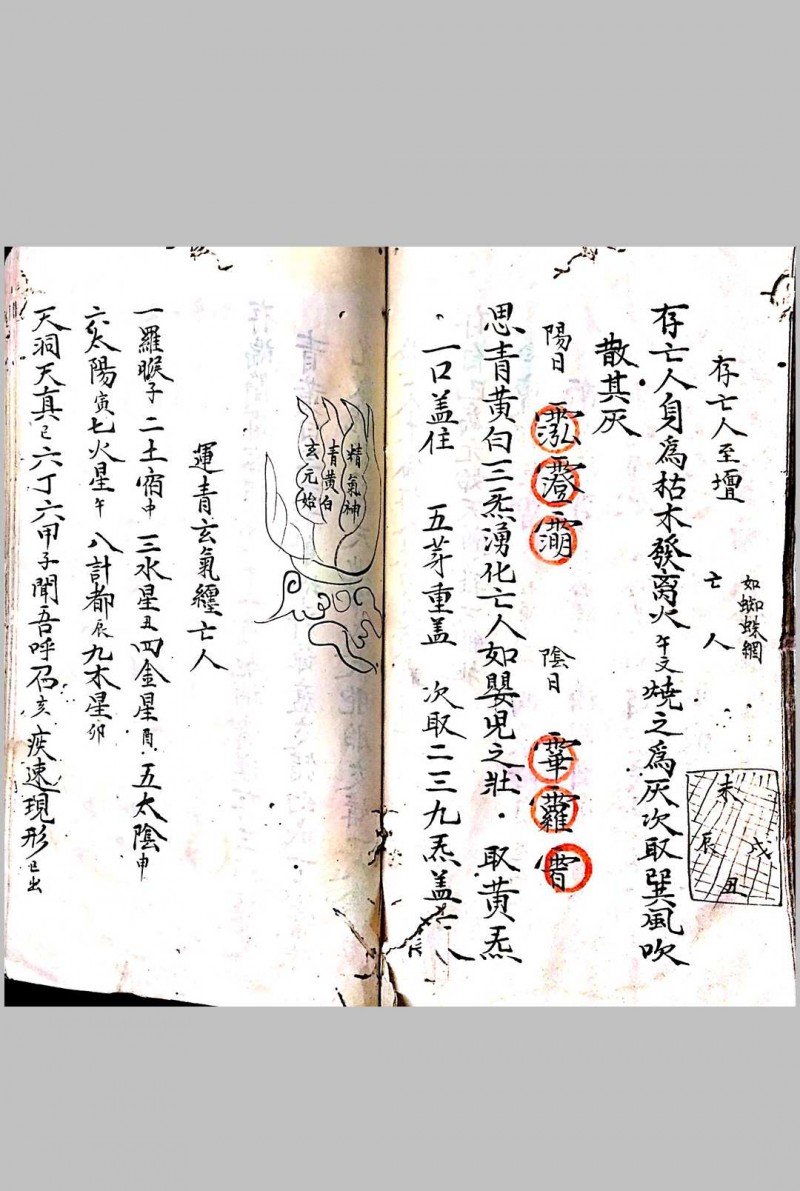 存亡人至壇 亡人 如蜘蛛網
未 戌 辰 丑
存亡人身爲枯木發离火午文燒之爲灰次取巽風吹
散其灰
陽日 陰日
思青黄白三炁湧化亡人如嬰児之壯·取黄炁
一口盖住 五芽重盖 次取二三九炁盖亡人
精氣神
青黄白
玄元始
運青玄氣纏亡人
一羅睺子 二土宿申 三水星丑 四金星酉 五太陰申
六太陽寅 七火星午 八計都辰 九木星卯
天洞天真已六丁六甲子聞吾呼召亥疾速現形已出